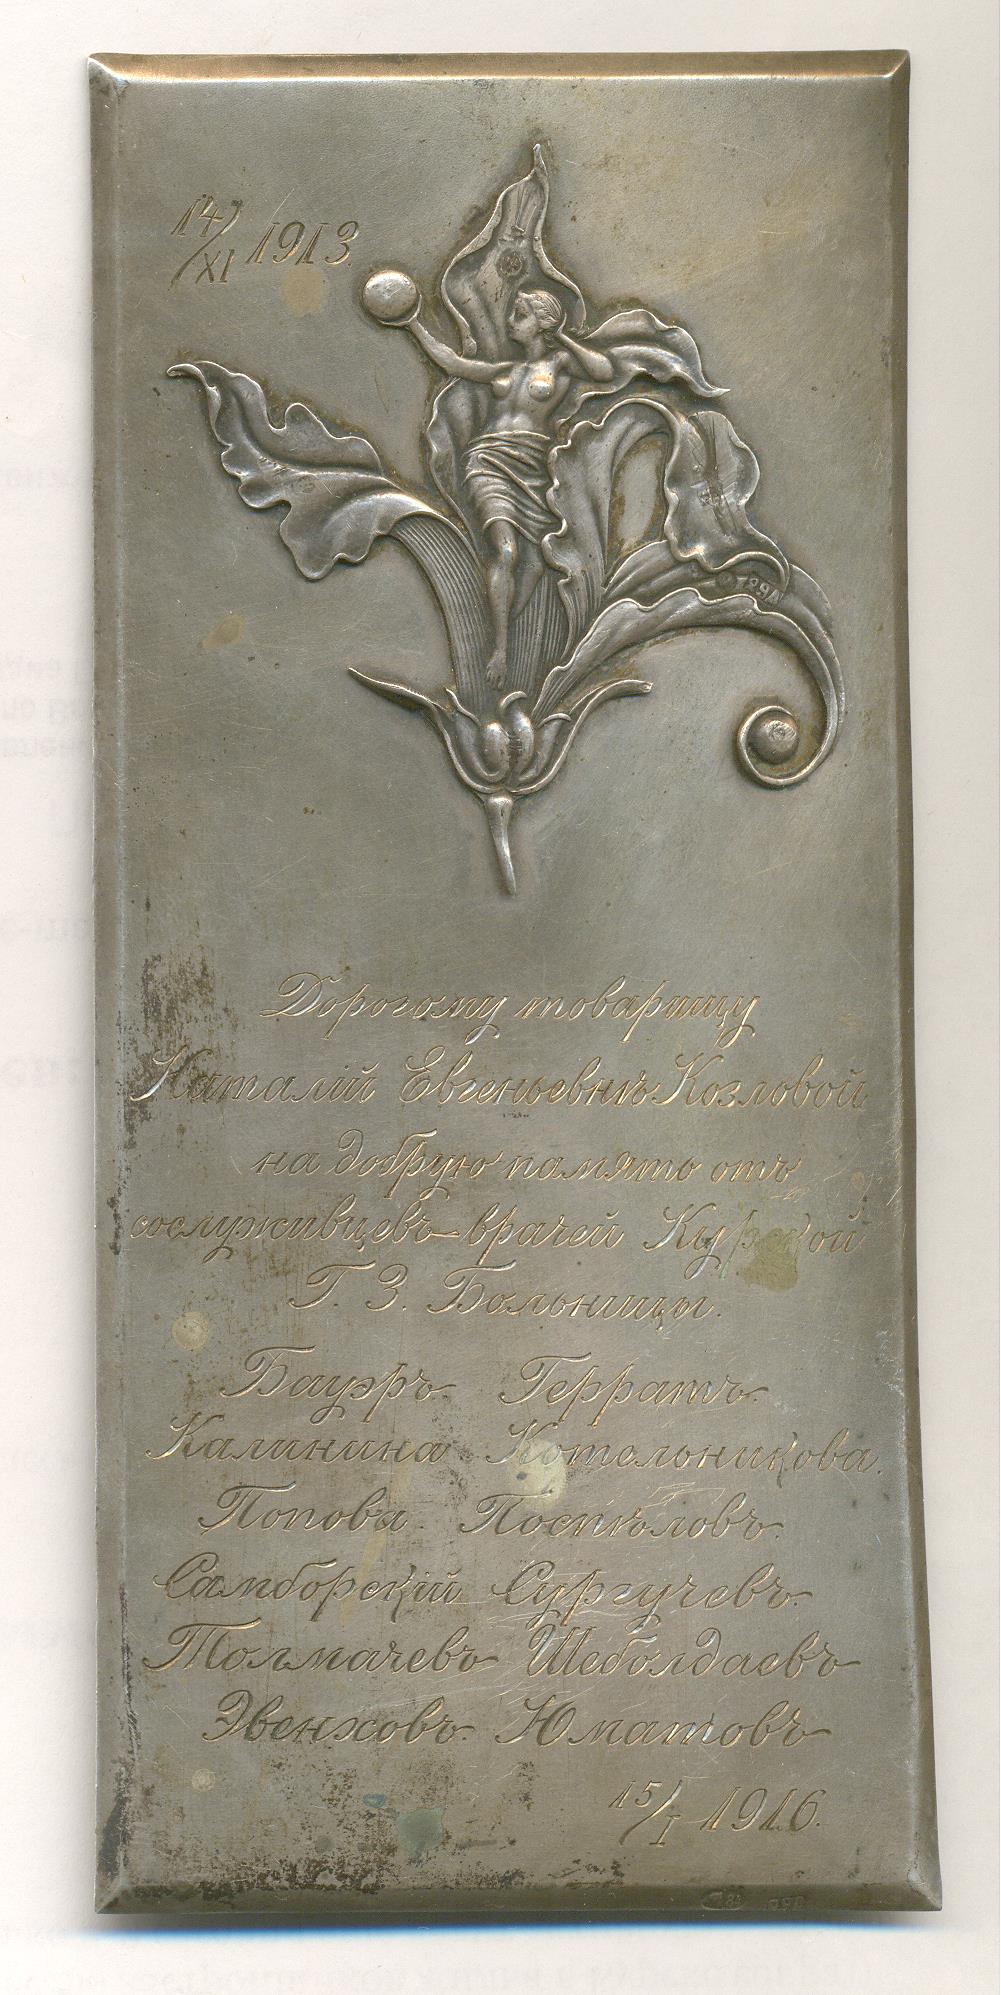 14/XI 1913.
Дорогому товарищу
Наталіи Евгеньевнѣ Козловой
на добрую память отъ
сослуживцевъ-врачей Курской
Г. З. Больницы.
Бауэръ. Геррать.
Калинина Котельникова.
Попова. Поспѣловъ.
Самборскій Сургучевъ.
Толмачевъ Шеболдаевъ
Эвенховъ. Юматовъ
15/I 1916.
84